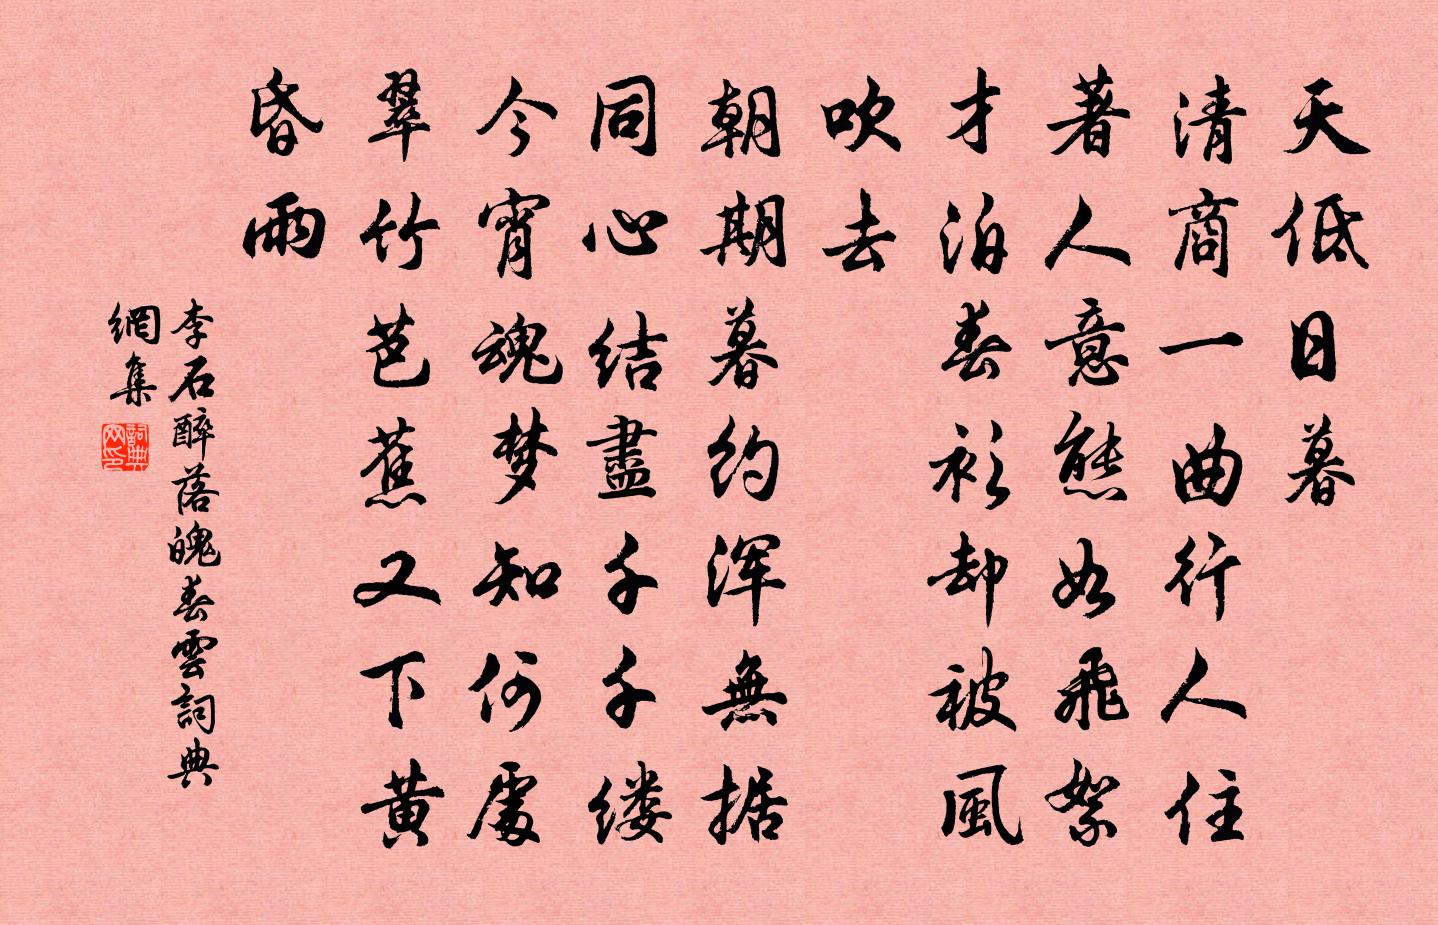 天低日暮
清商一曲行人住
著人意態如飛絮
才泊春衫却被風
吹去
朝期暮约浑無据
同心结盡千千缕
今宵魂梦知何處
翠竹芭蕉又下黄
昏雨
李石醉落魄春雲詞典
網集
詞典
网印